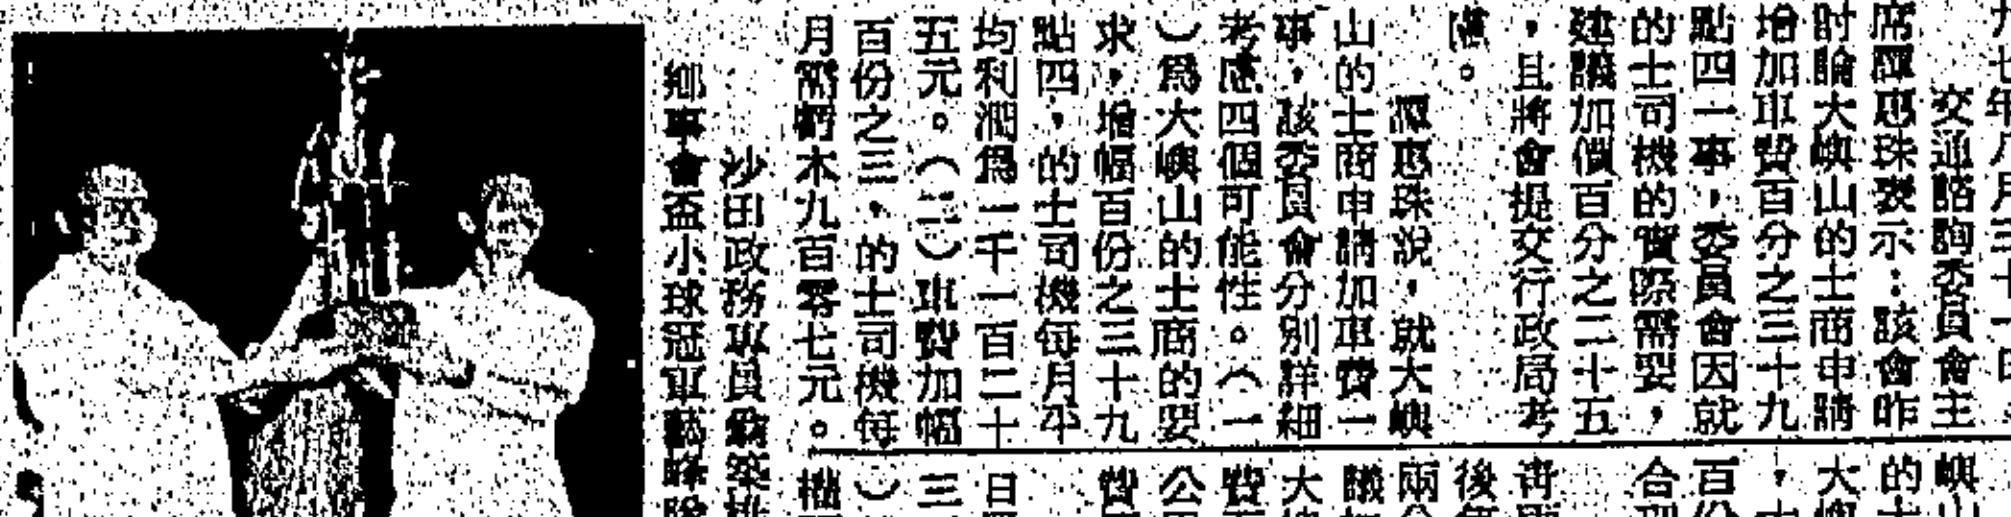 九七年八月三十一日。
交通諮詢委員會主
席譚惠珠表示：該會昨
討論大嶼山的士商申請
增加車費百分之三十九
點四一事，委員會因就
的士司機的實際需要，
建議加價百分之二十五
，且將會提交行政局考
慮。
譚惠珠說，就大嶼
山的士商申請加車費一
事，該委員會分別詳細
考慮四個可能性。（一
）爲大嶼山的士商的要
求，增幅百份之三十九
點四，的士司機每月平
均利潤爲一千一百二十
五元。（二）車費加幅
百份之三，的士司機每
月需虧本九百零七元。
沙田政務專員
鄉事會盃小球冠軍
嶼山
的士
大嶼
百份
合
後
兩
議
大
費
公
費
日
三
）